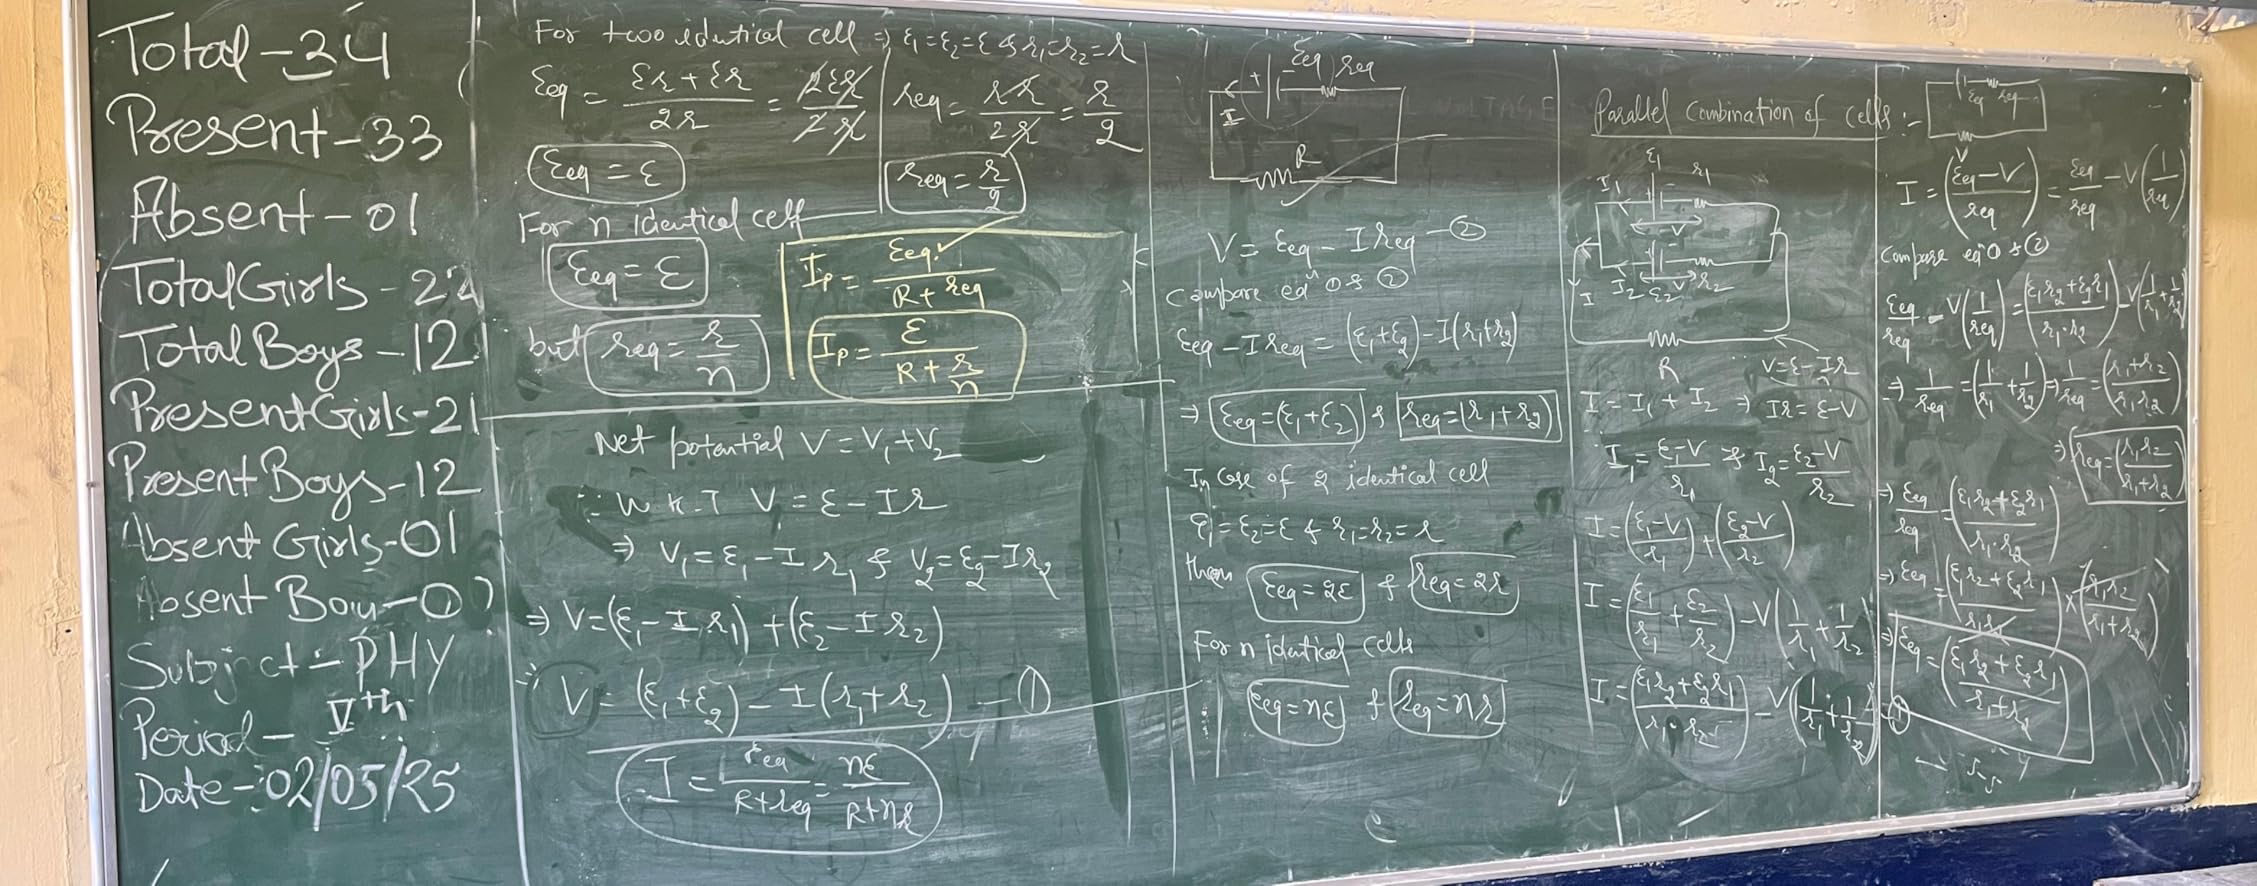 Total-34
Present-33
Absent-01
Total Girls-22
Total Boys-12
Present Girls-21
Present Boys-12
Absent Girls-01
Absent Boys-0
Subject-PHY
Period- Vth
Date-:02/05/25
For two identical cell ⇒ ε₁=ε₂=ε & r₁=r₂=r
εeq = (εr+εr)/2r = 2εr/2r
req = r·r/2r = r/2
εeq = ε
req = r/2
For n identical cell
εeq = ε
but req = r/n
Ip = εeq/(R+req)
Ip = ε/(R+r/n)
Net potential V=V₁+V₂
∵ W.K.T V = ε-Ir
⇒ V₁=ε₁-Ir₁ & V₂=ε₂-Ir₂
⇒ V=(ε₁-Ir₁)+(ε₂-Ir₂)
∴ V=(ε₁+ε₂)-I(r₁+r₂) —①
I = εeq/(R+req) = nε/(R+nr)
+ - εeq req
I
R
V = εeq-Ireq —②
Compare eqⁿ ① & ②
εeq-Ireq = (ε₁+ε₂)-I(r₁+r₂)
⇒ εeq=(ε₁+ε₂) & req=(r₁+r₂)
In case of 2 identical cell
ε₁=ε₂=ε & r₁=r₂=r
then εeq=2ε & req=2r
For n identical cells
εeq=nε & req=nr
Parallel Combination of cells:-
ε₁ r₁
I₁
V
I I₂ ε₂ V r₂
R
∵ V=ε-Ir
I=I₁+I₂ ⇒ Ir=ε-V
I₁=(ε₁-V)/r₁ & I₂=(ε₂-V)/r₂
I=((ε₁-V)/r₁)+((ε₂-V)/r₂)
I=(ε₁/r₁+ε₂/r₂)-V(1/r₁+1/r₂)
I=((ε₁r₂+ε₂r₁)/(r₁·r₂))-V(1/r₁+1/r₂) —①
εeq req
V
I=((εeq-V)/req)=εeq/req-V(1/req)
Compare eqⁿ ① & ②
εeq/req-V(1/req)=((ε₁r₂+ε₂r₁)/(r₁·r₂))-V(1/r₁+1/r₂)
⇒ 1/req=(1/r₁+1/r₂) ⇒ 1/req=((r₁+r₂)/(r₁r₂))
⇒ req=((r₁r₂)/(r₁+r₂))
⇒ εeq/req=((ε₁r₂+ε₂r₁)/(r₁·r₂))
⇒ εeq=((ε₁r₂+ε₂r₁)/(r₁r₂))×((r₁r₂)/(r₁+r₂))
⇒ εeq=((ε₁r₂+ε₂r₁)/(r₁+r₂))